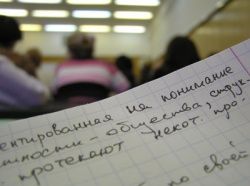 ентированная на понимание
нности – общества, струк-
протекают некот. про
по своей